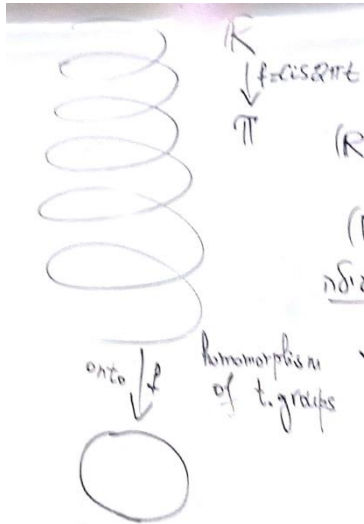 ℝ
↓ f=cis2πt
𝕋
(ℝ
onto ↓ f
homomorphism
of t.groups